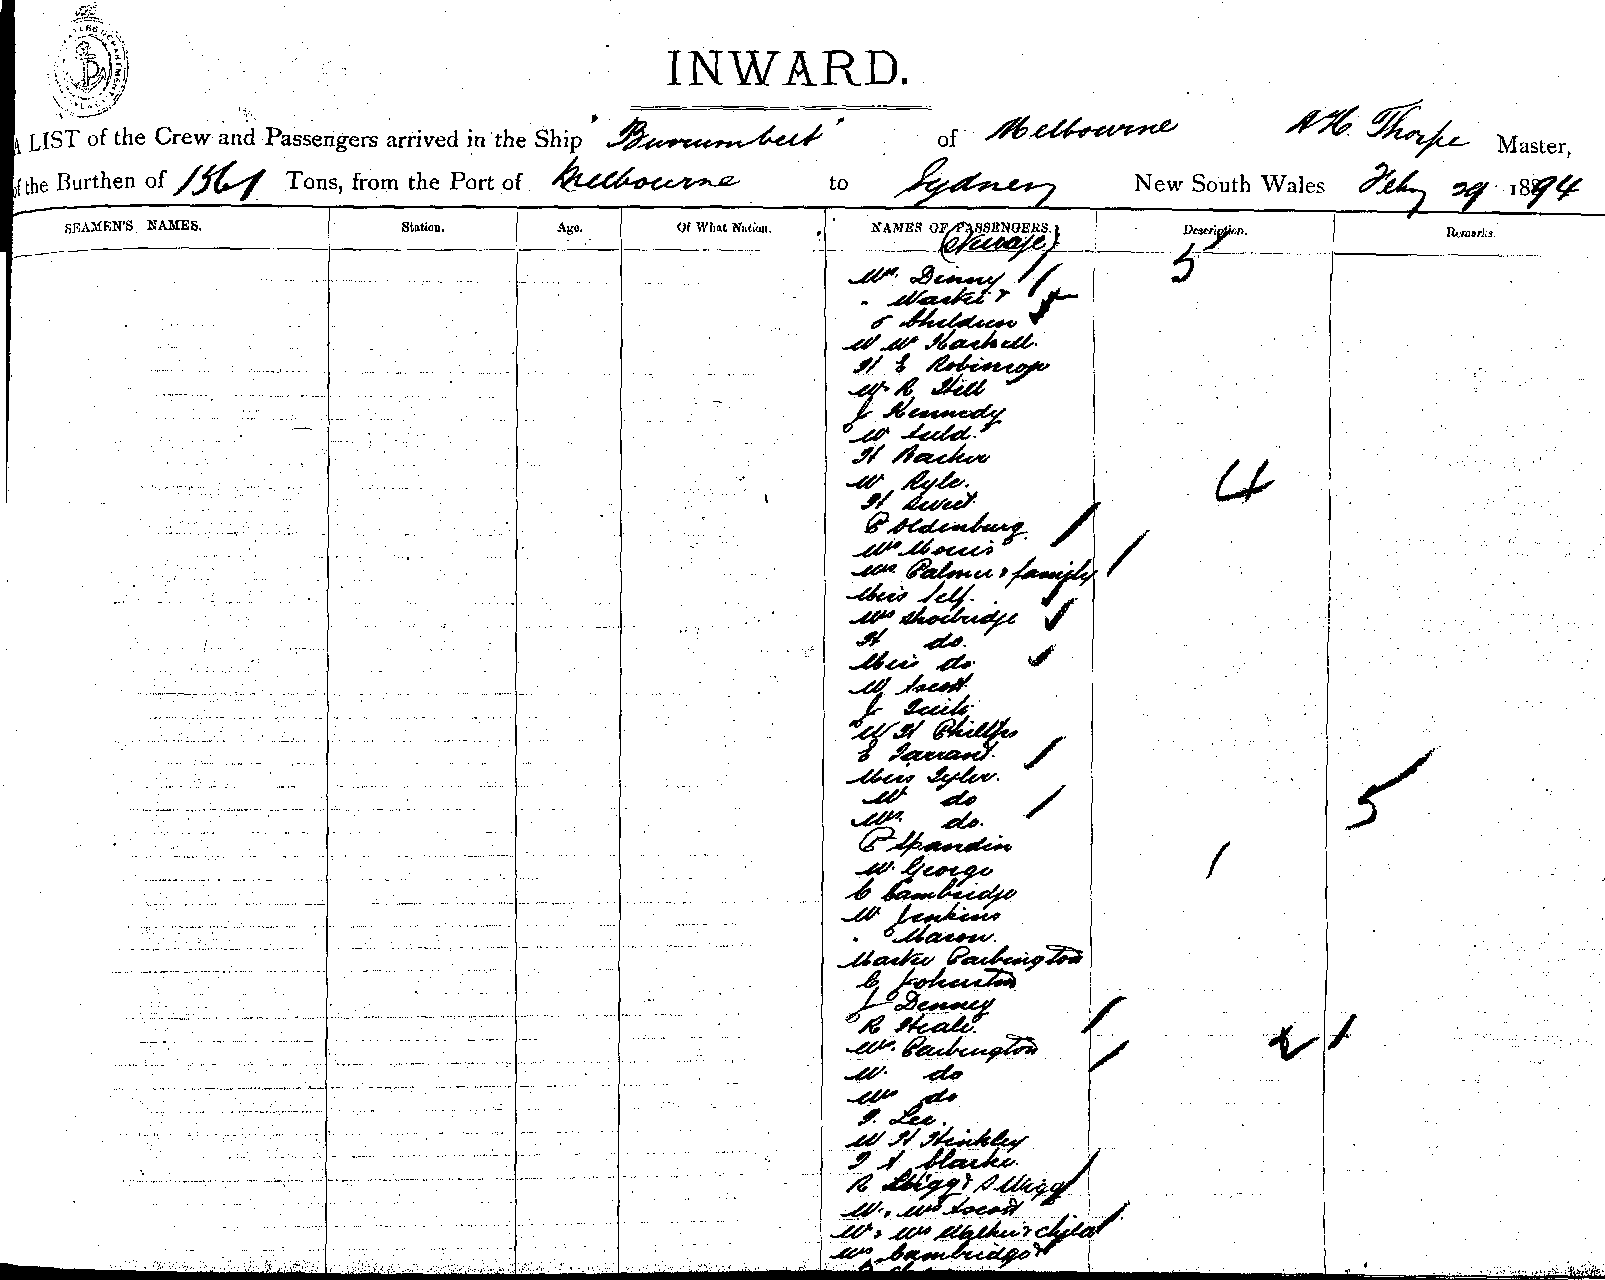 INWARD.
A LIST of the Crew and Passengers arrived in the Ship "Burrumbeet" of Melbourne A H. Thorpe Master,
of the Burthen of 1561 Tons, from the Port of Melbourne to Sydney New South Wales Feby 29 1894
SEAMEN'S NAMES. Station. Age. Of What Nation. NAMES OF PASSENGERS. Description. Remarks.
(Steerage)
5
Mrs. Denny
5 Children
W W Haskell.
H E Robinson
W. R. Hill
J Kennedy
W Auld.
H Barker
W Ryle. 4
H Sweet
P Oldenburg.
Mrs Morris
Mrs. Palmer & family
Miss Self.
Mrs Shoebridge
H do.
Miss do
W Ascott
J
W H Phillips
E Tarrant.
Miss Tyler.
W do 5
Mrs. do.
P Spandin
W. George
C Cambridge
W Jenkins
" Mason.
Master Parbington
C Johnston
J Denney
R Heale.
Mrs. Parbington 2
W. do
Mrs do
Lee.
W H Hinkley
A Clarke.
R
W. & Mrs Ascott
W. & Mrs Walker & child
Mrs. Cambridge &